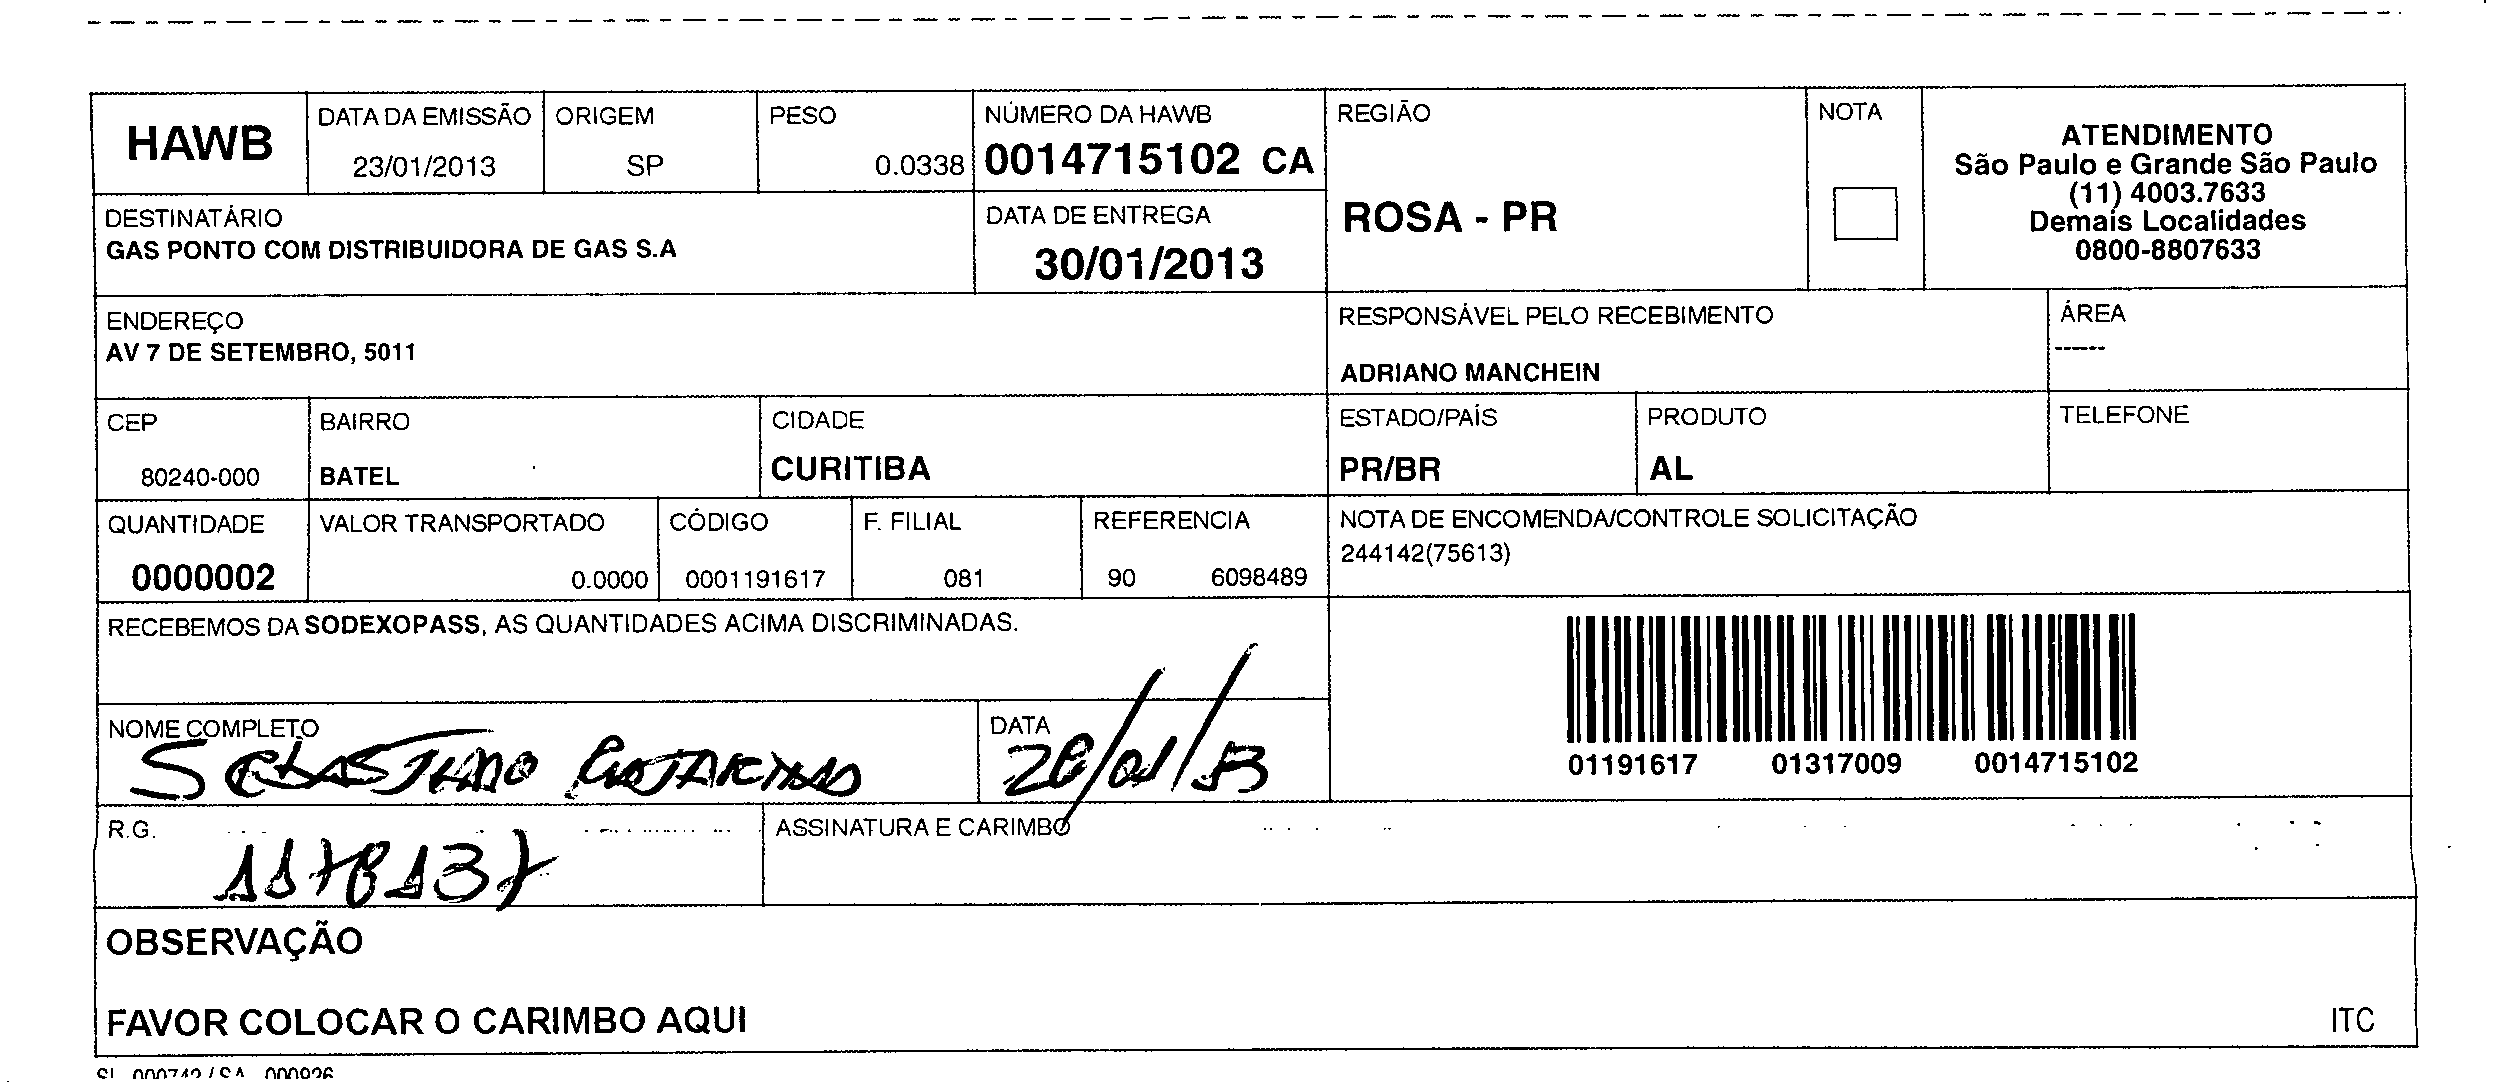 HAWB
DATA DA EMISSÃO
23/01/2013
ORIGEM
SP
PESO
0.0338
NÚMERO DA HAWB
0014715102 CA
REGIÃO
ROSA - PR
NOTA
ATENDIMENTO
São Paulo e Grande São Paulo
(11) 4003.7633
Demais Localidades
0800-8807633
DESTINATÁRIO
GAS PONTO COM DISTRIBUIDORA DE GAS S.A
DATA DE ENTREGA
30/01/2013
ENDEREÇO
AV 7 DE SETEMBRO, 5011
RESPONSÁVEL PELO RECEBIMENTO
ADRIANO MANCHEIN
ÁREA
------
CEP
80240-000
BAIRRO
BATEL
CIDADE
CURITIBA
ESTADO/PAÍS
PR/BR
PRODUTO
AL
TELEFONE
QUANTIDADE
0000002
VALOR TRANSPORTADO
0.0000
CÓDIGO
0001191617
F. FILIAL
081
REFERENCIA
90 6098489
NOTA DE ENCOMENDA/CONTROLE SOLICITAÇÃO
244142(75613)
RECEBEMOS DA SODEXOPASS, AS QUANTIDADES ACIMA DISCRIMINADAS.
NOME COMPLETO
DATA
01191617 01317009 0014715102
R.G.
1178137
ASSINATURA E CARIMBO
OBSERVAÇÃO
FAVOR COLOCAR O CARIMBO AQUI
ITC